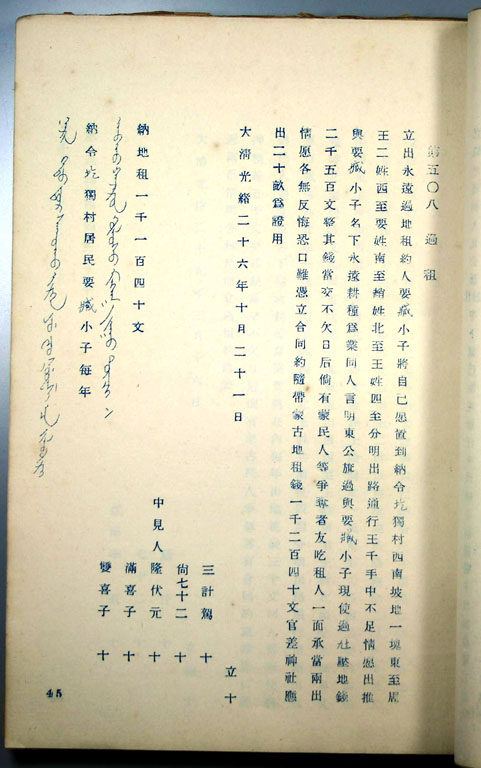 第五〇八 過租
立出永遠過地租約人要臧小子將自己愿置到納令圪獨村西南坡地一塊東至居
王二姓西至要姓南至趙姓北至王姓四至分明出路通行王千手中不足情愿出推
與要臧小子名下永遠耕種爲業同人言明東公旗過與要臧小子現使過社壓地錢
二千五百文整其錢當交不欠日后倘有蒙民人等爭奪者友吃租人一面承當兩出
情愿各無反悔恐口難憑立合同約隨帶蒙古地租錢一千二百四十文官差神社應
出二十畝爲證用
大淸光緖二十六年十月二十一日
立十
三計駕 十
尙七十二 十
中見人 隆伏元 十
滿喜子 十
雙喜子 十
納地租一千一百四十文
納令圪獨村居民要臧小子每年
45